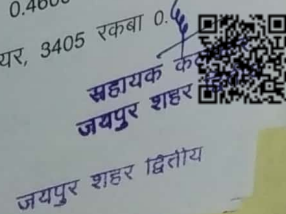 0.4600
यर, 3405 रकबा 0.
सहायक
जयपुर शहर
जयपुर शहर द्वितीय